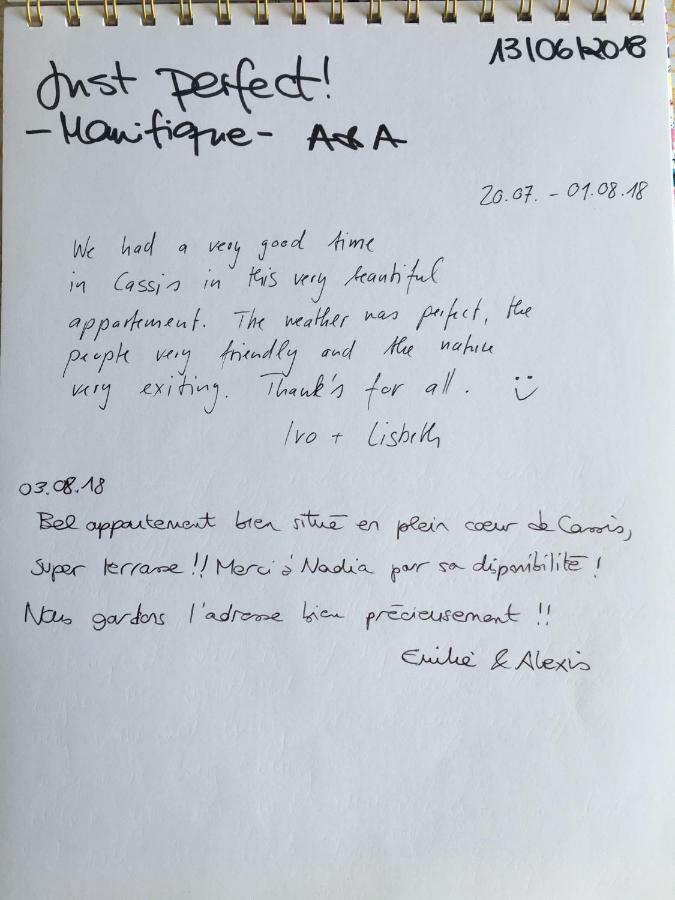 13/06/2018
Just perfect!
- Manifique - A&A
20.07. - 01.08.18
We had a very good time
in Cassis in this very beautiful
appartement. The weather was perfect, the
people very friendly and the nature
very exiting. Thank's for all. :)
Ivo + Lisbeth
03.08.18
Bel appartement bien situé en plein cœur de Cassis,
super terrasse !! Merci à Nadia par sa disponibilité !
Nous gardons l'adresse bien précieusement !!
Emilie & Alexis